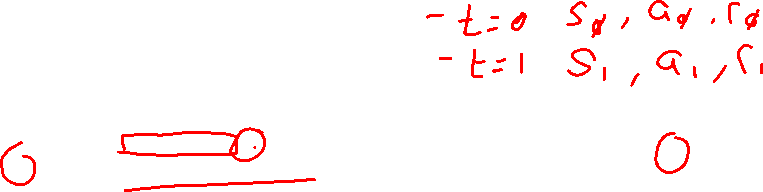 - t=0 s0, a0, r0
- t=1 s1, a1, r1